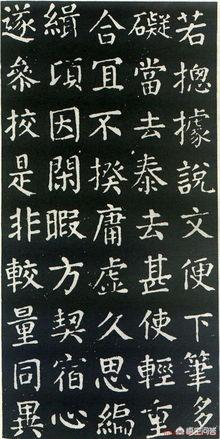 若揔據說文便下筆多
礙當去泰去甚使輕重
合宜不揆庸虛久思編
緝頃因閑暇方契宿心
遂參挍是非較量同異
悟空问答